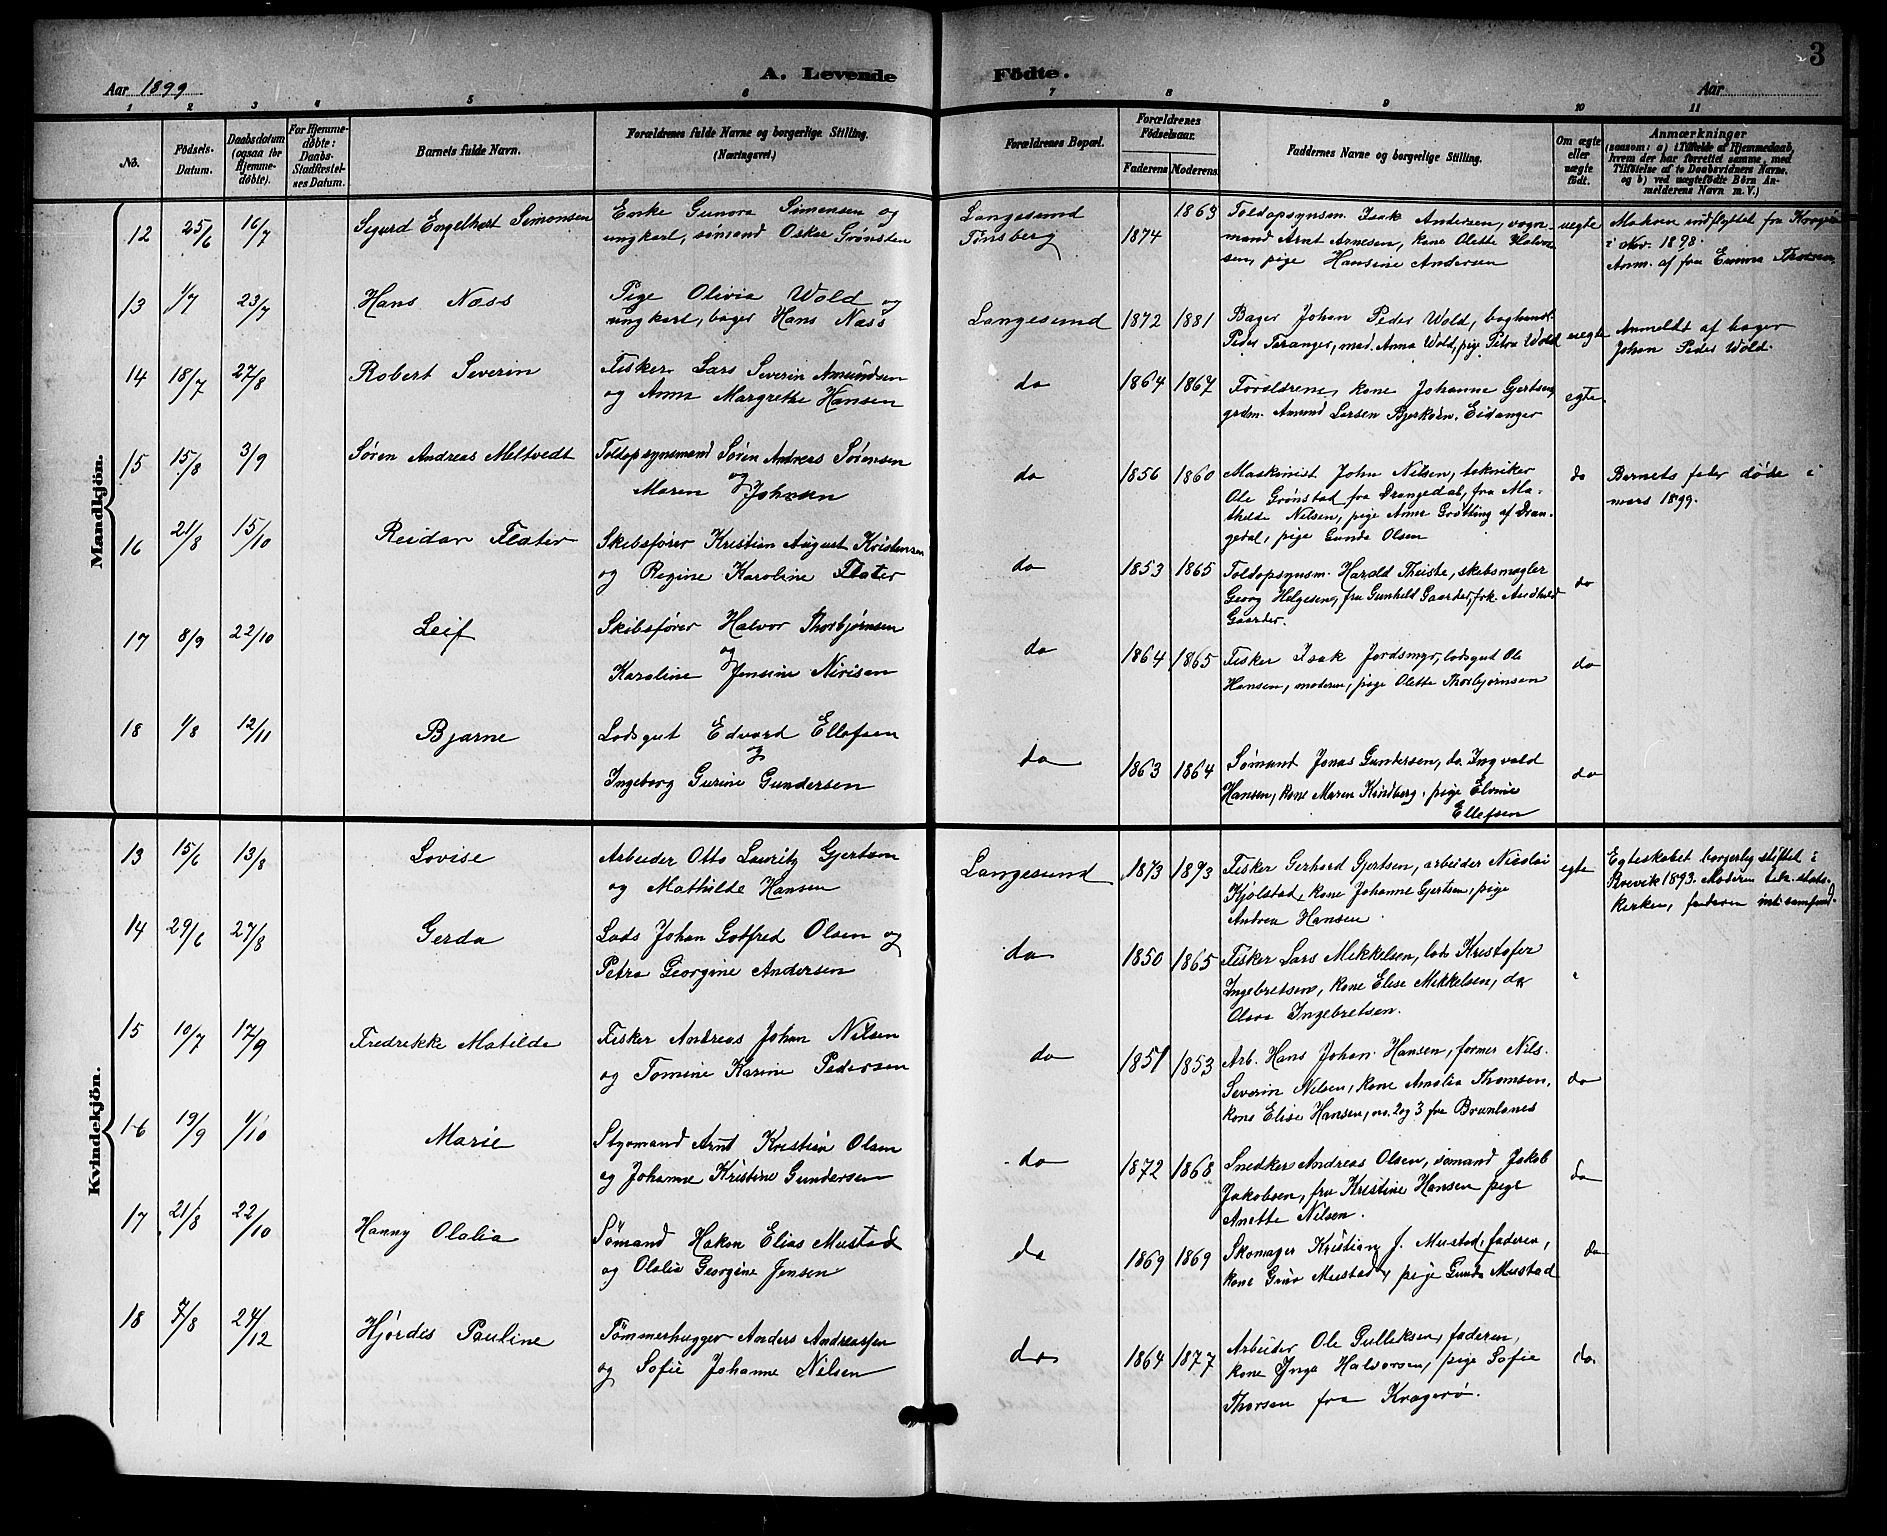 A. Levende Födte.
3
Aar 1899
Aar
1 2 3 4 5 6 7 8 9 10 11
No.
Födsels-Datum.
Daabsdatum (ogsaa for Hjemme-döbte).
For Hjemme-döbte: Daabs-Stadfæstel-ses Datum.
Barnets fulde Navn.
Forældrenes fulde Navne og borgerlige Stilling.
(Næringsvei.)
Forældrenes Bopæl.
Forældrenes Födselsaar.
Faderens Moderens
Faddernes Navne og borgerlige Stilling.
Om ægte eller uægte födt.
Anmærkninger
(saasom: a) i Tilfælde af Hjemmedaab,
hvem der har forrettet samme, med
Tilföielse af to Daabsvidners Navne,
og b) ved uægtefödte Börn An-
melderens Navn m. V.)
Mandkjön.
12 25/6 16/7 Sigurd Engelhart Simonsen
Enke Gunora Simensen og
ungkarl, sömand Oskar Grønsten
Langesund
Tønsberg
1874 1863
Toldopsynsm. Isak Andersen, vogn-
mand Arnt Arnesen, kone Olette Halvor
sen, pige Hansine Andersen
uegte
Moderen indflyttet fra Kragerø
i Nov. 1898.
Anm. af fru Emma Thorsen
13 1/7 23/7 Hans Næss
Pige Olivia Wold og
ungkarl, bager Hans Næss
Langesund 1872 1881
Bager Johan Peder Wold, boghandl.
Peder Taranger, mad. Anna Wold, pige Petra Wold
uegte
Anmeldt af bager
Johan Peder Wold.
14 18/7 27/8 Robert Severin
Fisker Lars Severin Amundsen
og Anna Margrethe Hansen
do 1864 1867
Forældrene, kone Johanne Gjertsen,
grdm. Amund Larsen Bjørkøen, Eidanger
egte
15 15/8 3/9 Søren Andreas Meltvedt
Toldopsynsmand Søren Andreas Sørensen
og
Maren Johnsen
do 1856 1860
Maskinist John Nilsen, tekniker
Ole Grønstad fra Drangedal, fru Ma-
thilde Nilsen, pige Anne Grøtting af Dran-
gedal, pige Gunda Olsen
do
Barnets fader døde i
mars 1899.
16 21/8 15/10 Reidar Flater
Skibsfører Kristian August Kristensen
og Regine Karoline Flater
do 1853 1865
Toldopsynsm. Harald Theiste, skibsmægler
Georg Helgesen, fru Gunhild Gaarder, frk. Andhild
Gaarder.
do
17 8/9 22/10 Leif
Skibsfører Halvor Thorbjørnsen
og
Karoline Jensine Nirisen
do 1864 1865
Fisker Isak Jordsmyr, lodsgut Ole
Hansen, moderen, pige Olette Thorbjørnsen
do
18 1/8 12/11 Bjarne
Lodsgut Edvard Ellefsen
og
Ingeborg Gurine Gundersen
do 1863 1864
Sømand Jonas Gundersen, do. Ingvald
Hansen, kone Maren Kindberg, pige Elvine
Ellefsen
do
Kvindekjön.
13 15/6 13/8 Lovise
Arbeider Otto Lauritz Gjertsen
og Mathilde Hansen
Langesund 1873 1873
Fisker Gerhard Gjertsen, arbeider Nicolai
Kjølstad, kone Johanne Gjertsen, pige
Andrea Hansen.
egte
Egteskabet borgerlig stiftet i
Brevik 1893. Moderen tilh. stats-
kirken, faderen int. samfund.
14 29/6 27/8 Gerda
Lods Johan Gotfred Olsen og
Petra Georgine Andersen
do 1850 1865
Fisker Lars Mikkelsen, lods Kristofer
Ingebretsen, kone Elise Mikkelsen, do
Olava Ingebretsen.
15 10/7 17/9 Fredrikke Matilde
Fisker Andreas Johan Nilsen
og Tomine Karine Pedersen
do 1851 1853
Arb. Hans Johan Hansen, former Nils
Severin Nilsen, kone Amalia Thomsen,
kone Elise Hansen, no. 2 og 3 fra Brunlanes
do
16 19/9 1/10 Marie
Styrmand Arnt Kristian Olsen
og Johanne Kristine Gundersen
do 1872 1868
Snedker Andreas Olsen, sømand Jakob
Jakobsen, fru Kristine Hansen pige
Anette Nilsen.
do
17 21/8 22/10 Hanny Olalia
Sømand Hakon Elias Mustad
og Olalia Georgine Jensen
do 1869 1869
Skomager Kristian J. Mustad, faderen,
kone Grüo Mustad, pige Gunda Mustad
do
18 7/8 24/12 Hjørdis Pauline
Tømmerhugger Anders Andreassen
og Sofie Johanne Nilsen
do 1864 1877
Arbeider Ole Gulliksen, faderen,
kone Inga Halvorsen, pige Sofie
Thorsen fra Kragerø.
do.